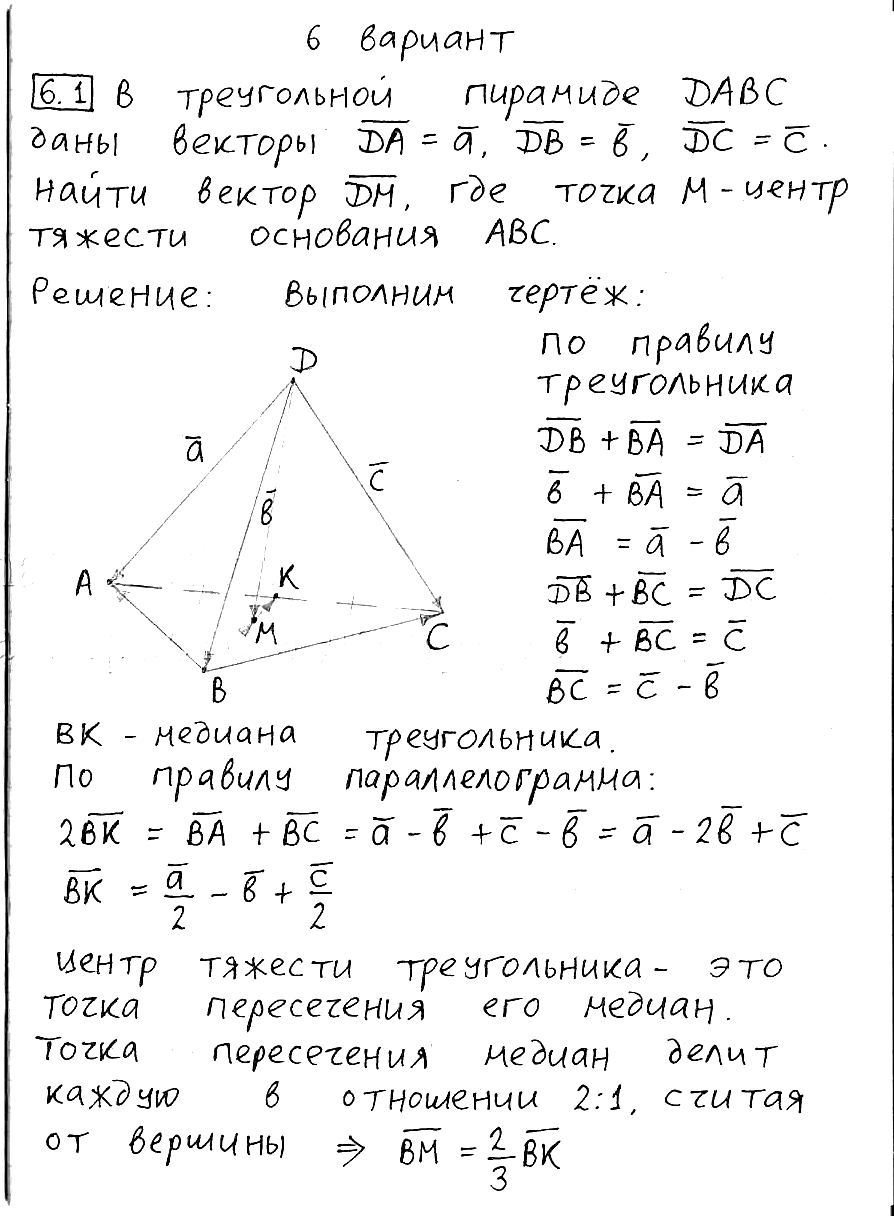 6 вариант
6.1 В треугольной пирамиде DABC
даны векторы D̅A̅ = a̅, D̅B̅ = в̅, D̅C̅ = c̅.
Найти вектор D̅M̅, где точка М - центр
тяжести основания ABC.
Решение: Выполним чертёж:
По правилу
треугольника
D̅B̅ + B̅A̅ = D̅A̅
в̅ + B̅A̅ = a̅
B̅A̅ = a̅ - в̅
D̅B̅ + B̅C̅ = D̅C̅
в̅ + B̅C̅ = c̅
B̅C̅ = c̅ - в̅
D
a̅
c̅
в̅
A
K
M
C
B
BK - медиана треугольника.
По правилу параллелограмма:
2B̅K̅ = B̅A̅ + B̅C̅ = a̅ - в̅ + c̅ - в̅ = a̅ - 2в̅ + c̅
B̅K̅ = a̅/2 - в̅ + c̅/2
Центр тяжести треугольника - это
точка пересечения его медиан.
Точка пересечения медиан делит
каждую в отношении 2:1, считая
от вершины ⇒ B̅M̅ = 2/3 B̅K̅